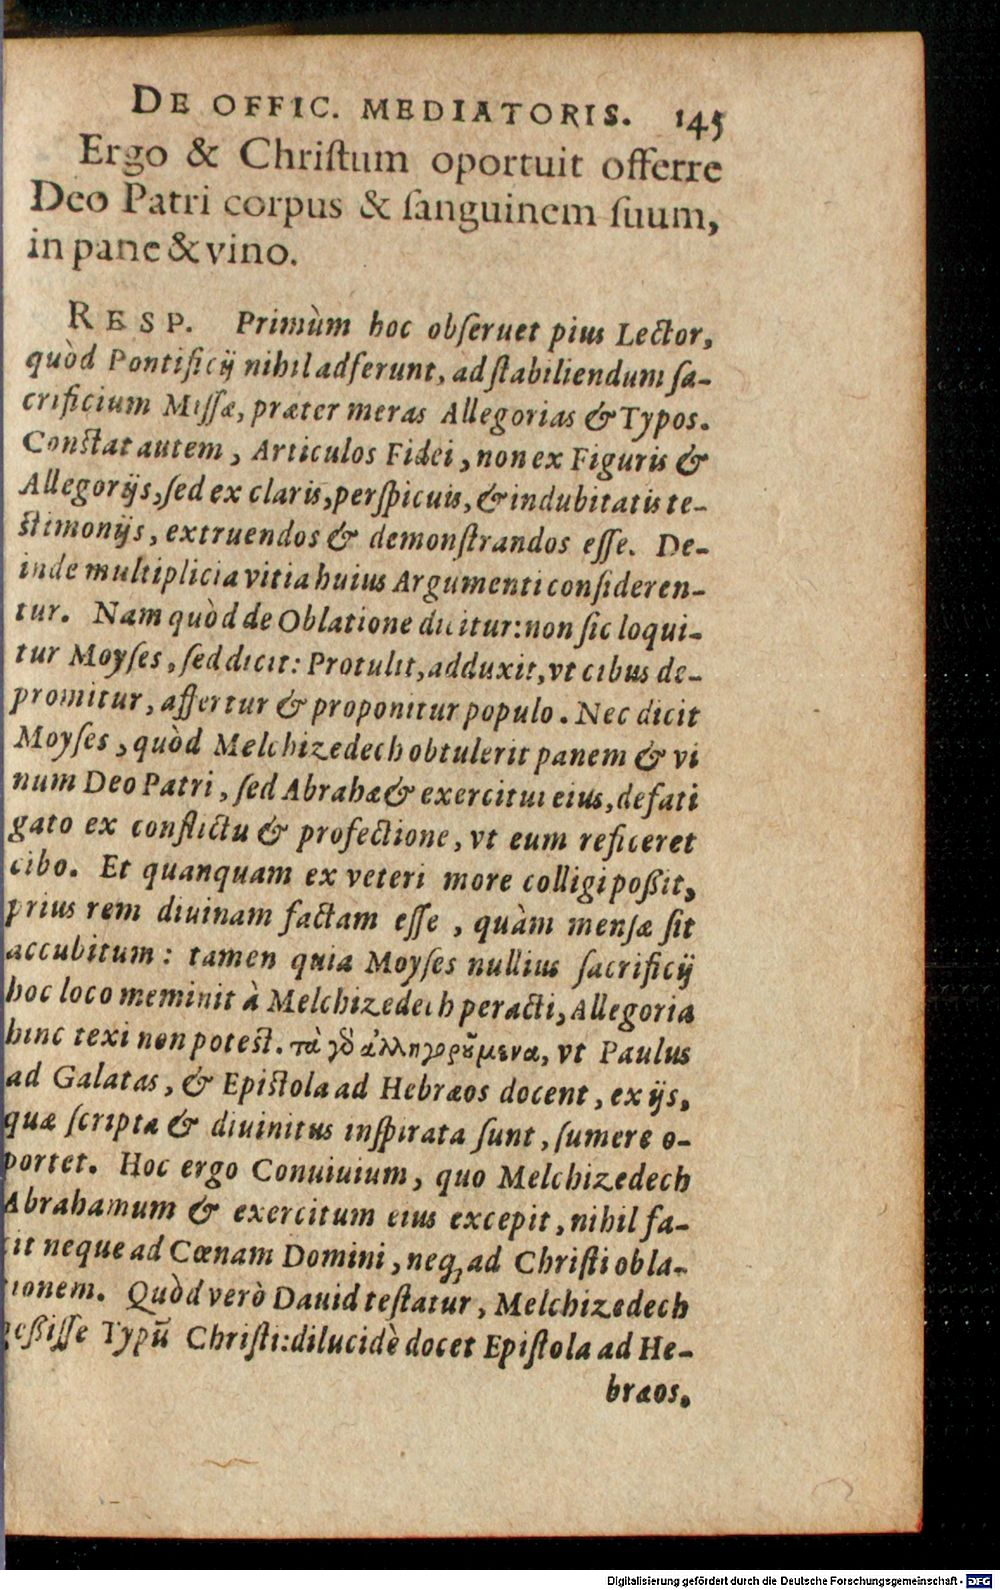 DE OFFIC. MEDIATORIS. 145
Ergo & Chriſtum oportuit offerre
Deo Patri corpus & ſanguinem ſuum,
in pane & vino.
RESP. Primùm hoc obſeruet pius Lector,
quòd Pontificij nihil adferunt, ad ſtabiliendum ſa-
crificium Miſſæ, præter meras Allegorias & Typos.
Conſtat autem, Articulos Fidei, non ex Figuris &
Allegorijs, ſed ex claris, perſpicuis, & indubitatis te-
ſtimonijs, extruendos & demonſtrandos eſſe. De-
inde multiplicia vitia huius Argumenti conſideren-
tur. Nam quòd de Oblatione dicitur: non ſic loqui-
tur Moyſes, ſed dicit: Protulit, adduxit, vt cibus de-
promitur, affertur & proponitur populo. Nec dicit
Moyſes, quòd Melchizedech obtulerit panem & vi
num Deo Patri, ſed Abrahæ & exercitui eius, defati
gato ex conflictu & profectione, vt eum reficeret
cibo. Et quanquam ex veteri more colligi poßit,
prius rem diuinam factam eſſe, quàm menſæ ſit
accubitum: tamen quia Moyſes nullius ſacrificij
hoc loco meminit à Melchizedech peracti, Allegoria
hinc texi non poteſt. τὰ γὸ ἀλληγορȣ́μενα, vt Paulus
ad Galatas, & Epiſtola ad Hebræos docent, ex ijs,
quæ ſcripta & diuinitus inſpirata ſunt, ſumere o-
portet. Hoc ergo Conuiuium, quo Melchizedech
Abrahamum & exercitum eius excepit, nihil fa-
cit neque ad Cœnam Domini, neq; ad Chriſti obla-
tionem. Quòd verò Dauid teſtatur, Melchizedech
geßiſſe Typũ Chriſti: dilucidè docet Epiſtola ad He-
bræos.
Digitalisierung gefördert durch die Deutsche Forschungsgemeinschaft - DFG